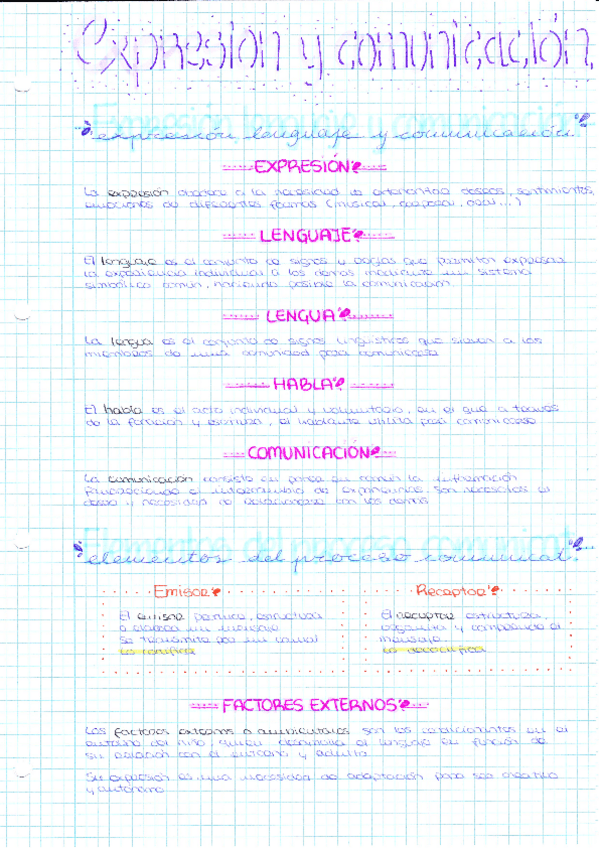 Expresión y comunicación
expresión, lenguaje y comunicación
EXPRESIÓN
La expresión obedece a la necesidad de exteriorizar deseos, sentimientos,
emociones de diferentes formas (musical, corporal, oral...)
LENGUAJE
El lenguaje es el conjunto de signos y que permiten expresar
la experiencia individual a los demás mediante un sistema
simbólico común, haciendo posible la comunicación.
LENGUA
La lengua es el conjunto de signos lingüísticos que sirven a los
miembros de una comunidad para comunicarse
HABLA
El habla es el acto individual y voluntario, en el que a través
de la fonación y escritura, el hablante utiliza para comunicarse
COMUNICACIÓN
La comunicación consiste en poner en común la información
el intercambio de experiencias. Son necesarios el
deseo y necesidad de relacionarse con los demás
elementos del proceso comunicat.
Emisor
Receptor
El emisor estructura
o elabora un mensaje
Se transmite por un canal
Lo codifica
El receptor estructura,
organiza y comprende el
mensaje.
Lo decodifica
FACTORES EXTERNOS
Los factores externos o son los condicionantes en el
entorno del niño, quien desarrolla el lenguaje en función de
su relación con el entorno y adulto
Su expresión es una necesidad de adaptación para ser creativo
y autónomo